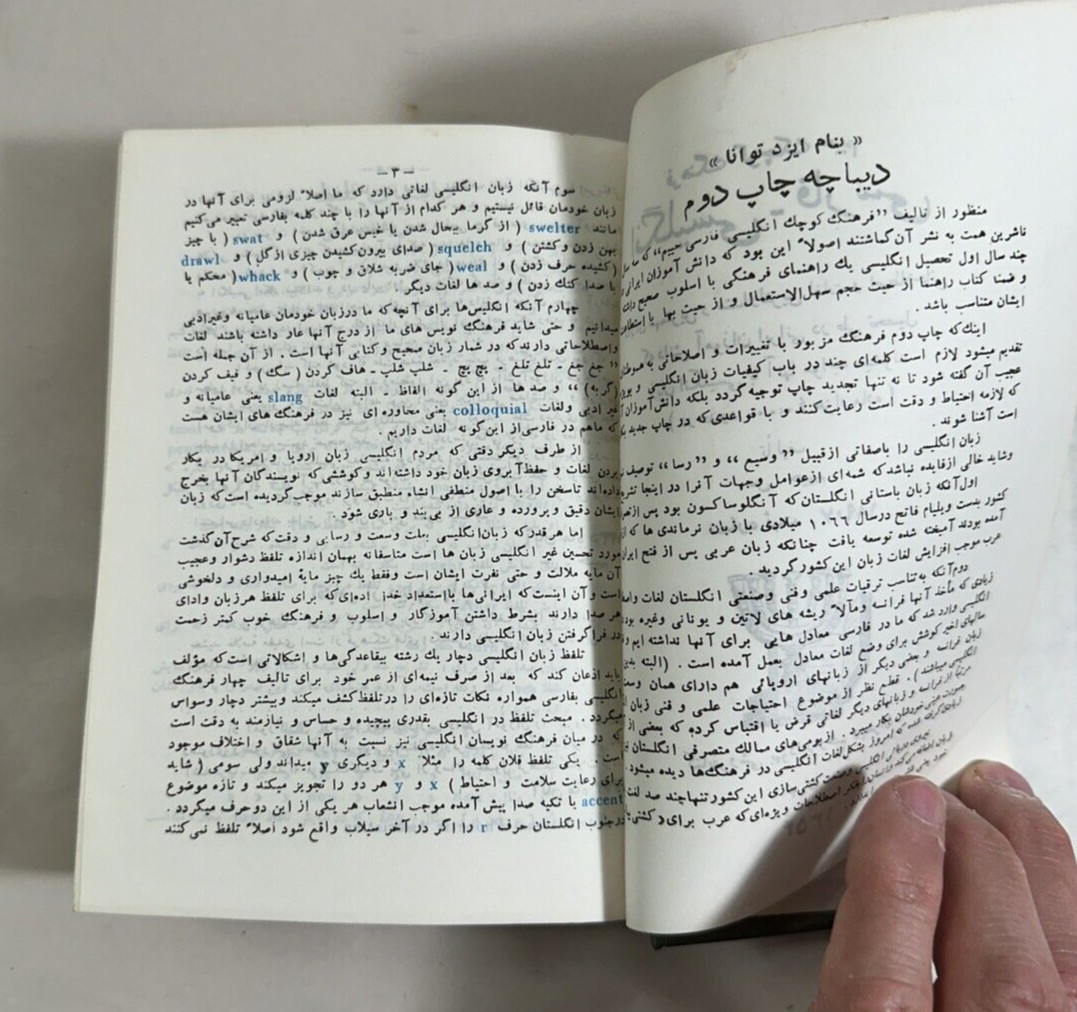 « بنام ایزد توانا »
دیباچه چاپ دوم
منظور از تالیف «فرهنگ کوچك انگلیسی فارسی حییم» که
ناشرین همت به نشر آن گماشتند اصولا" این بود که دانش آموزان ایرانی
چند سال اول تحصیل انگلیسی یك راهنمای فرهنگی با اسلوب صحیح
و ضمنا کتاب راهنما از حیث حجم سهل‌الاستعمال و از حیث بها با
ایشان متناسب باشد .
اینك که چاپ دوم فرهنگ مزبور با تغییرات و اصلاحاتی به
تقدیم میشود لازم است کلمه‌ای چند در باب کیفیات زبان انگلیسی و
عجیب آن گفته شود تا نه تنها تجدید چاپ توجیه گردد بلکه دانش‌آموزان
که لازمه احتیاط و دقت است رعایت کنند و با قواعدی که در چاپ جدید
است آشنا شوند .
زبان انگلیسی را باصفاتی ازقبیل «وسیع» و «رسا» توصیف
وشاید خالی ازفایده نباشد که شمه‌ای ازعوامل وجهات آنرا در اینجا
اول آنکه زبان باستانی انگلستان که آنگلوساکسون بود پس از
کشور بدست ویلیام فاتح درسال ۱۰۶۶ میلادی با زبان نرماندی ها که
آمده بودند آمیخته شده توسعه یافت چنانکه زبان عربی پس از فتح ایران
عرب موجب افزایش لغات زبان این کشور گردید .
دوم آنکه به تناسب ترقیات علمی وفنی وصنعتی انگلستان لغات
زیادی که مأخذ آنها فرانسه ومآلا" ریشه های لاتین و یونانی وغیره
انگلیسی وارد شد که ما در فارسی معادل هایی برای آنها نداشته ایم
سالهای اخیر کوشش برای وضع لغات معادل بعمل آمده است . (البته
زبان فرانسه و بعضی دیگر از زبانهای اروپائی هم دارای همان
انگلیسی میباشند) . قطع نظر از موضوع احتیاجات علمی و فنی زبان
از فرانسه و زبانهای دیگر لغاتی قرض یا اقتباس کرده که بعضی از
خودشان بکار میبرد . از بومی‌های ممالك متصرفی انگلستان
که امروز بشکل لغات انگلیسی در فرهنگ‌ها دیده میشود .
انگلیسی وصنعت کشتی سازی این کشور تنها چند صد لغت
اصطلاحات ویژه‌ای که عرب برای
— ۳ —
سوم آنکه زبان انگلیسی لغاتی دارد که ما اصلا" لزومی برای آنها در
زبان خودمان قائل نیستیم و هر کدام از آنها را با چند کلمه بفارسی تعبیر می‌کنیم
مانند swelter ( از گرما بیحال شدن یا خیس عرق شدن ) و swat ( با چیز
پهن زدن و کشتن ) و squelch ( صدای بیرون کشیدن چیزی از گل ) و drawl
( کشیده حرف زدن ) و weal ( جای ضربه شلاق و چوب ) و whack ( محکم یا
با صدا کتك زدن ) و صد ها لغات دیگر .
چهارم آنکه انگلیس‌ها برای آنچه که ما درزبان خودمان عامیانه وغیرادبی
میدانیم و حتی شاید فرهنگ نویس های ما از درج آنها عار داشته باشند لغات
واصطلاحاتی دارند که در شمار زبان صحیح و کتابی آنها است . از آن جمله است
« جغ جغ - تلغ تلغ - پچ پچ - شلپ شلپ - هاف کردن ( سگ ) و فیف کردن
( گربه ) » و صد ها از این گونه الفاظ - البته لغات slang یعنی عامیانه و
غیر ادبی ولغات colloquial یعنی محاوره ای نیز در فرهنگ های ایشان هست
که ماهم در فارسی از این گونه لغات داریم .
از طرف دیگر دقتی که مردم انگلیسی زبان اروپا و امریکا در بکار
بردن لغات و حفظ آبروی زبان خود داشته‌اند و کوششی که نویسندگان آنها بخرج
داده‌اند تاسخن را با اصول منطقی انشاء منطبق سازند موجب گردیده است که زبان
ایشان دقیق و پرورده و عاری از بی‌بند و باری شود .
اما هر قدر که زبان انگلیسی بعلت وسعت و رسایی و دقت که شرح آن گذشت
مورد تحسین غیر انگلیسی زبان ها است متاسفانه بهمان اندازه تلفظ دشوار وعجیب
آن مایه ملالت و حتی نفرت ایشان است وفقط یك چیز مایهٔ امیدواری و دلخوشی
است و آن اینست که ایرانی‌ها بااستعداد خدا داده‌ای که برای تلفظ هرزبان وادای
هر صدا دارند بشرط داشتن آموزگار و اسلوب و فرهنگ خوب کمتر زحمت
در فرا گرفتن زبان انگلیسی دارند .
تلفظ زبان انگلیسی دچار یك رشته بیقاعدگی‌ها و اشکالاتی است که مؤلف
باید اذعان کند که بعد از صرف نیمه‌ای از عمر خود برای تالیف چهار فرهنگ
انگلیسی بفارسی همواره نکات تازه‌ای را در تلفظ کشف میکند وبیشتر دچار وسواس
میگردد . مبحث تلفظ در انگلیسی بقدری پیچیده و حساس و نیازمند به دقت است
که در میان فرهنگ نویسان انگلیسی نیز نسبت به آنها شقاق و اختلاف موجود
است . یکی تلفظ فلان کلمه را مثلا" x و دیگری y میداند ولی سومی ( شاید
برای رعایت سلامت و احتیاط ) x و y هر دو را تجویز میکند و تازه موضوع
accent یا تکیه صدا پیش آمده موجب انشعاب هر یکی از این دو حرف میگردد .
درجنوب انگلستان حرف r را اگر در آخر سیلاب واقع شود اصلا" تلفظ نمی‌کنند